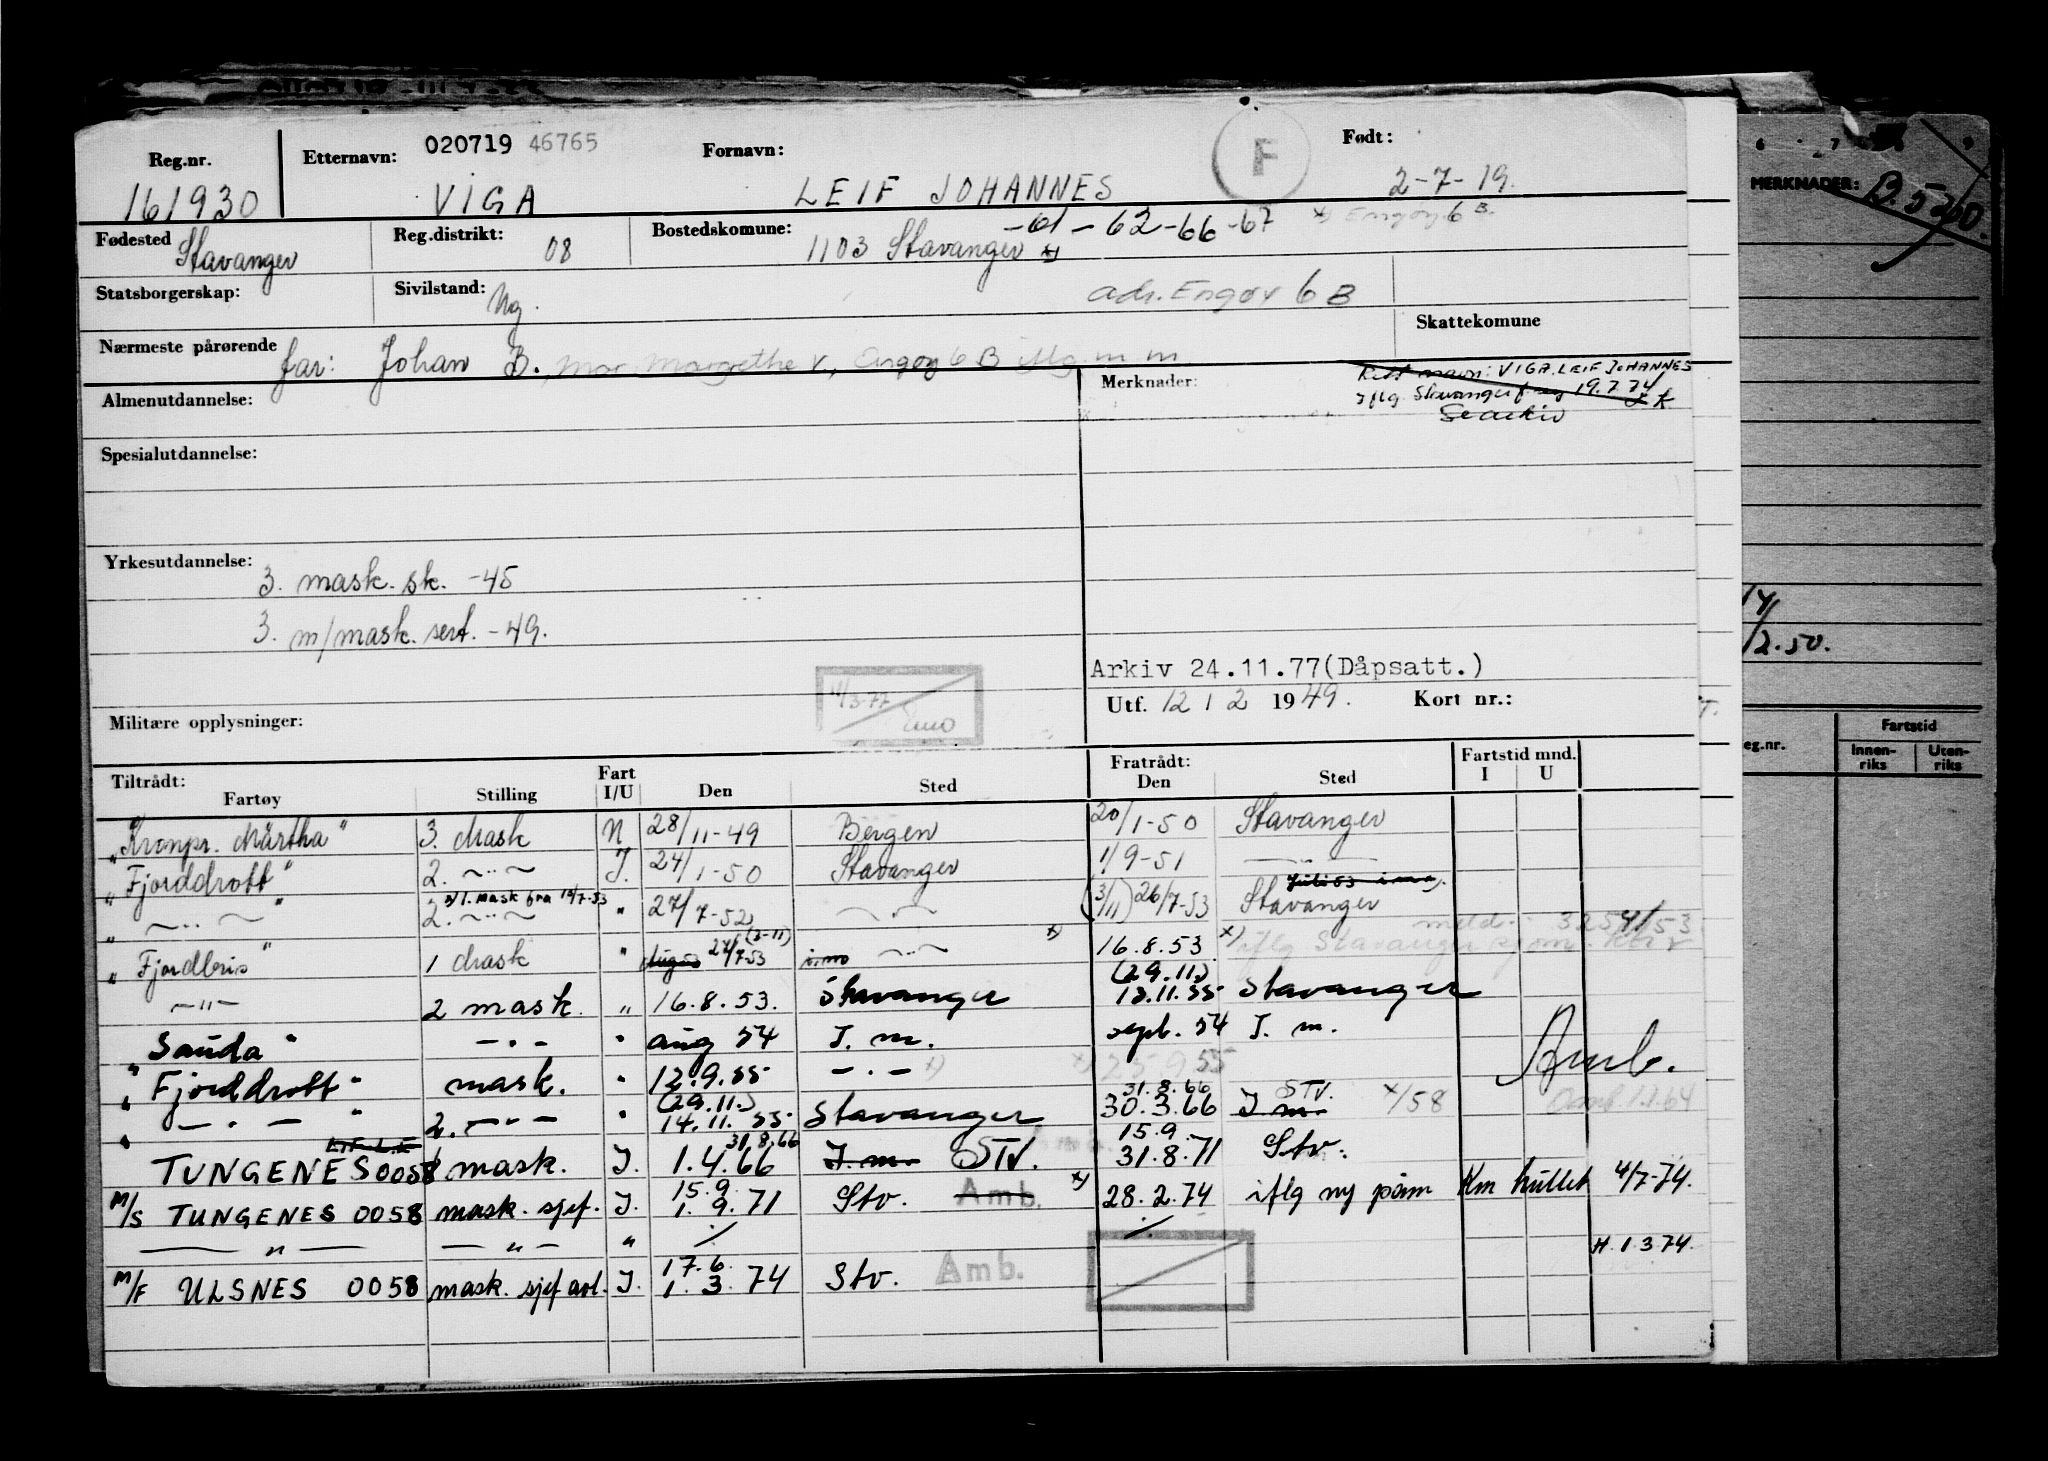 Reg.nr. Etternavn: 020719 46765 Fornavn: F Født:
161930 VIGA LEIF JOHANNES 2-7-19.
Fødested Stavanger Reg.distrikt: 08 Bostedskomune: 1103 Stavanger x) -61-62-66-67 x) Engøy 6 B.
Statsborgerskap: Sivilstand: Ug. adr. Engøy 6 B
Skattekomune
Nærmeste pårørende far: Johan B., mor Margrethe V, Engøy 6 B
Almenutdannelse: Merknader: Rett navn: VIGA, LEIF JOHANNES
iflg Stavanger 19.7.74
Se arkiv
Spesialutdannelse:
Yrkesutdannelse: 3. mask. sk. -45
3. m/mask. sert. -49.
Arkiv 24.11.77(Dåpsatt.)
Utf. 12 / 2 1949. Kort nr.:
Militære opplysninger:
Tiltrådt: Fartøy Stilling Fart I/U Den Sted Fratrådt: Den Sted Fartstid mnd. I U
"Kronpr. Märtha" 3. Mask N 28/11-49 Bergen 20/1-50 Stavanger
"Fjorddrott" 2. -"- I. 24/1-50 Stavanger 1/9-51 -"-
" -"- " 2. -"- x/1. mask fra 18/7-53 " 27/7-52 -"- (3/11) 26/7-53 Stavanger
"Fjordbris" 1 Mask " 27/7-53 (3-11) -"- x) 16.8.53 x) iflg Stavanger
-"- 2 mask. " 16.8.53. Stavanger (29.11.) 13.11.55 Stavanger
"Sauda" -"- " aug 54 I. m. sept. 54 I. m.
"Fjorddrott" mask. " 12.9.55 -"- x) x) 25.9.55 Amb.
" -"- " 2. -"- " (29.11.) 14.11.55 Stavanger 31.8.66 30.3.66 I m. STV. x/58 Omb. 1.1.64
TUNGENES 0058 1 mask. I. 31.8.66 1.4.66 I. m. STV. 15.9. 31.8.71 Stv.
M/S TUNGENES 0058 mask. sjef. I. 15.9. 1.9.71 Stv. Amb. x) 28.2.74 iflg ny påm Km hullet 4/7-74.
-"- -"- " / / H. 1.3.74.
M/F ULSNES 0058 mask. sjef avl. I. 17.6. 1.3.74 Stv. Amb.
MERKNADER: B. 5260.
14/2.50.
eg.nr. Fartstid
Innen-riks Uten-riks